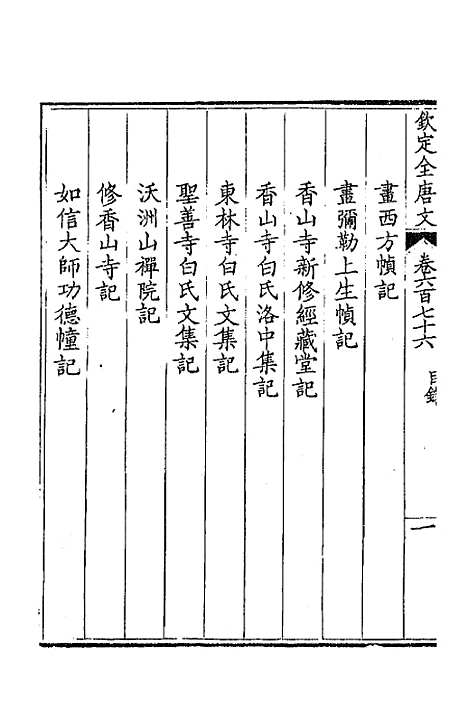 欽定全唐文 卷六百七十六 目錄 一
畫西方幀記
畫彌勒上生幀記
香山寺新修經藏堂記
香山寺白氏洛中集記
東林寺白氏文集記
聖善寺白氏文集記
沃洲山禪院記
修香山寺記
如信大師功德幢記